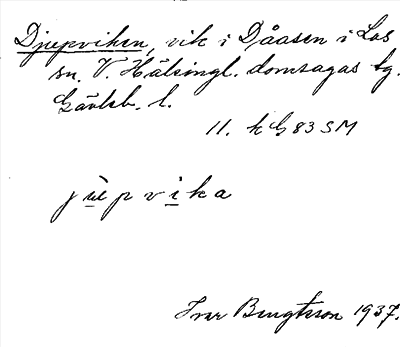 Djupviken, vik i Dåasen i Los
sn. V. Hälsingl. domsagas tg.
Gävleb. l.
11. k G 83 SM
jùpvika
Ivar Bengtsson 1937.